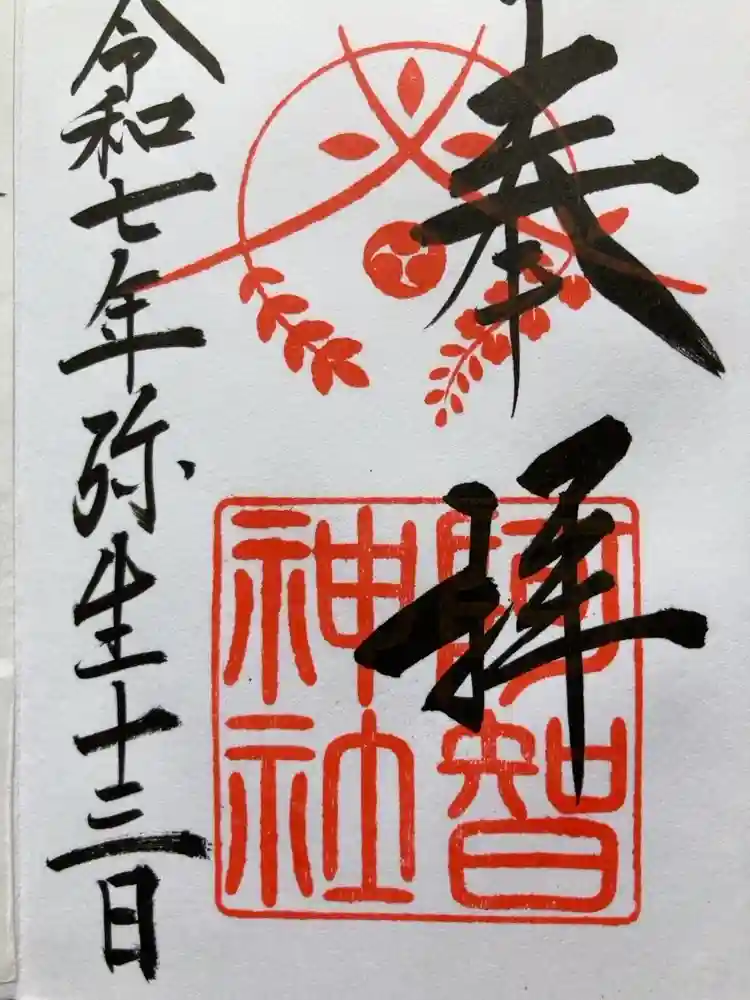 奉拝
阿智
神社
令和七年弥生十三日